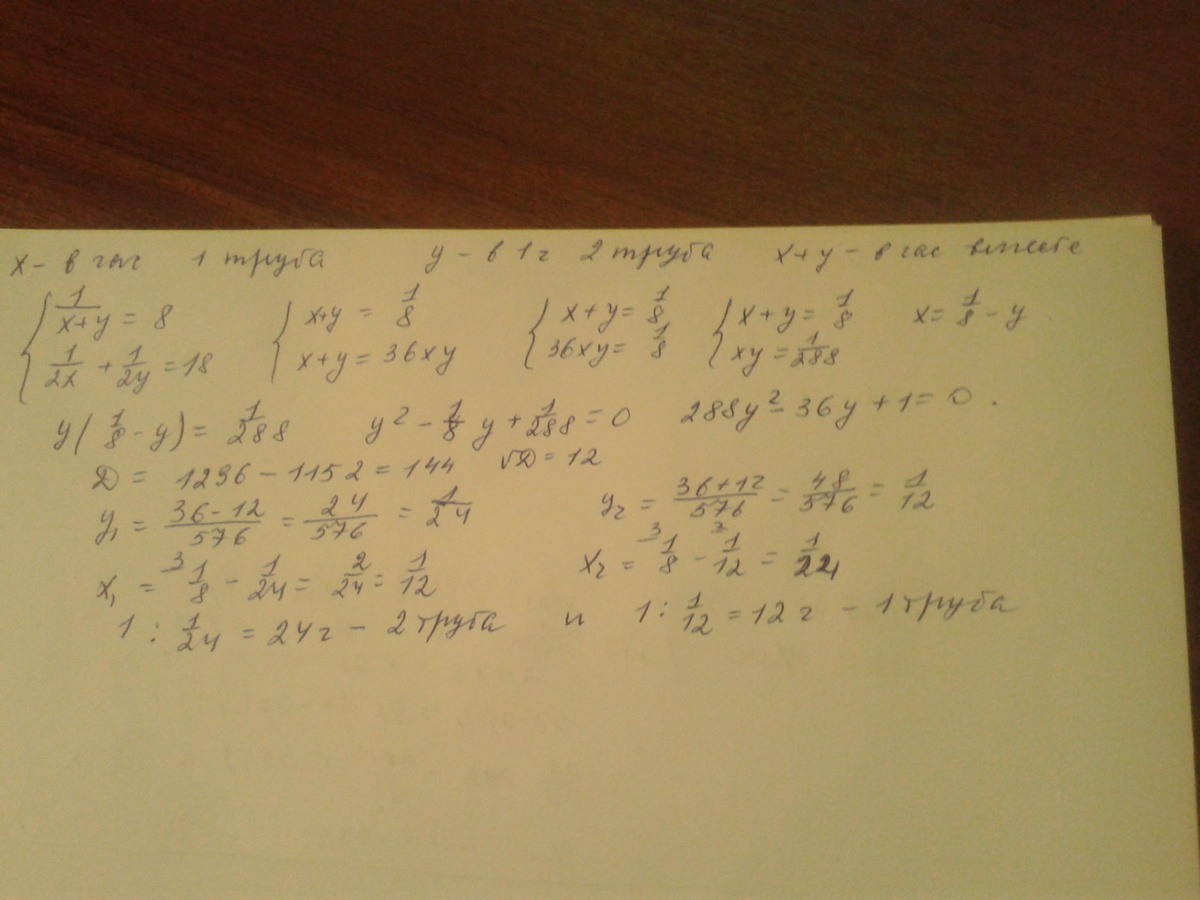 x - в час 1 труба y - в 1 ч 2 труба x+y - в час вместе
{ 1/(x+y) = 8 { x+y = 1/8 { x+y = 1/8 { x+y = 1/8 x = 1/8 - y
1/2x + 1/2y = 18 x+y = 36xy 36xy = 1/8 xy = 1/288
y(1/8 - y) = 1/288 y² - 1/8 y + 1/288 = 0 288y² - 36y + 1 = 0.
D = 1296 - 1152 = 144 √D = 12
y₁ = (36-12)/576 = 24/576 = 1/24 y₂ = (36+12)/576 = 48/576 = 1/12
x₁ = ³ 1/8 - 1/24 = 2/24 = 1/12 x₂ = ³ 1/8 - ² 1/12 = 1/24
1 : 1/24 = 24 ч - 2 труба и 1 : 1/12 = 12 ч - 1 труба